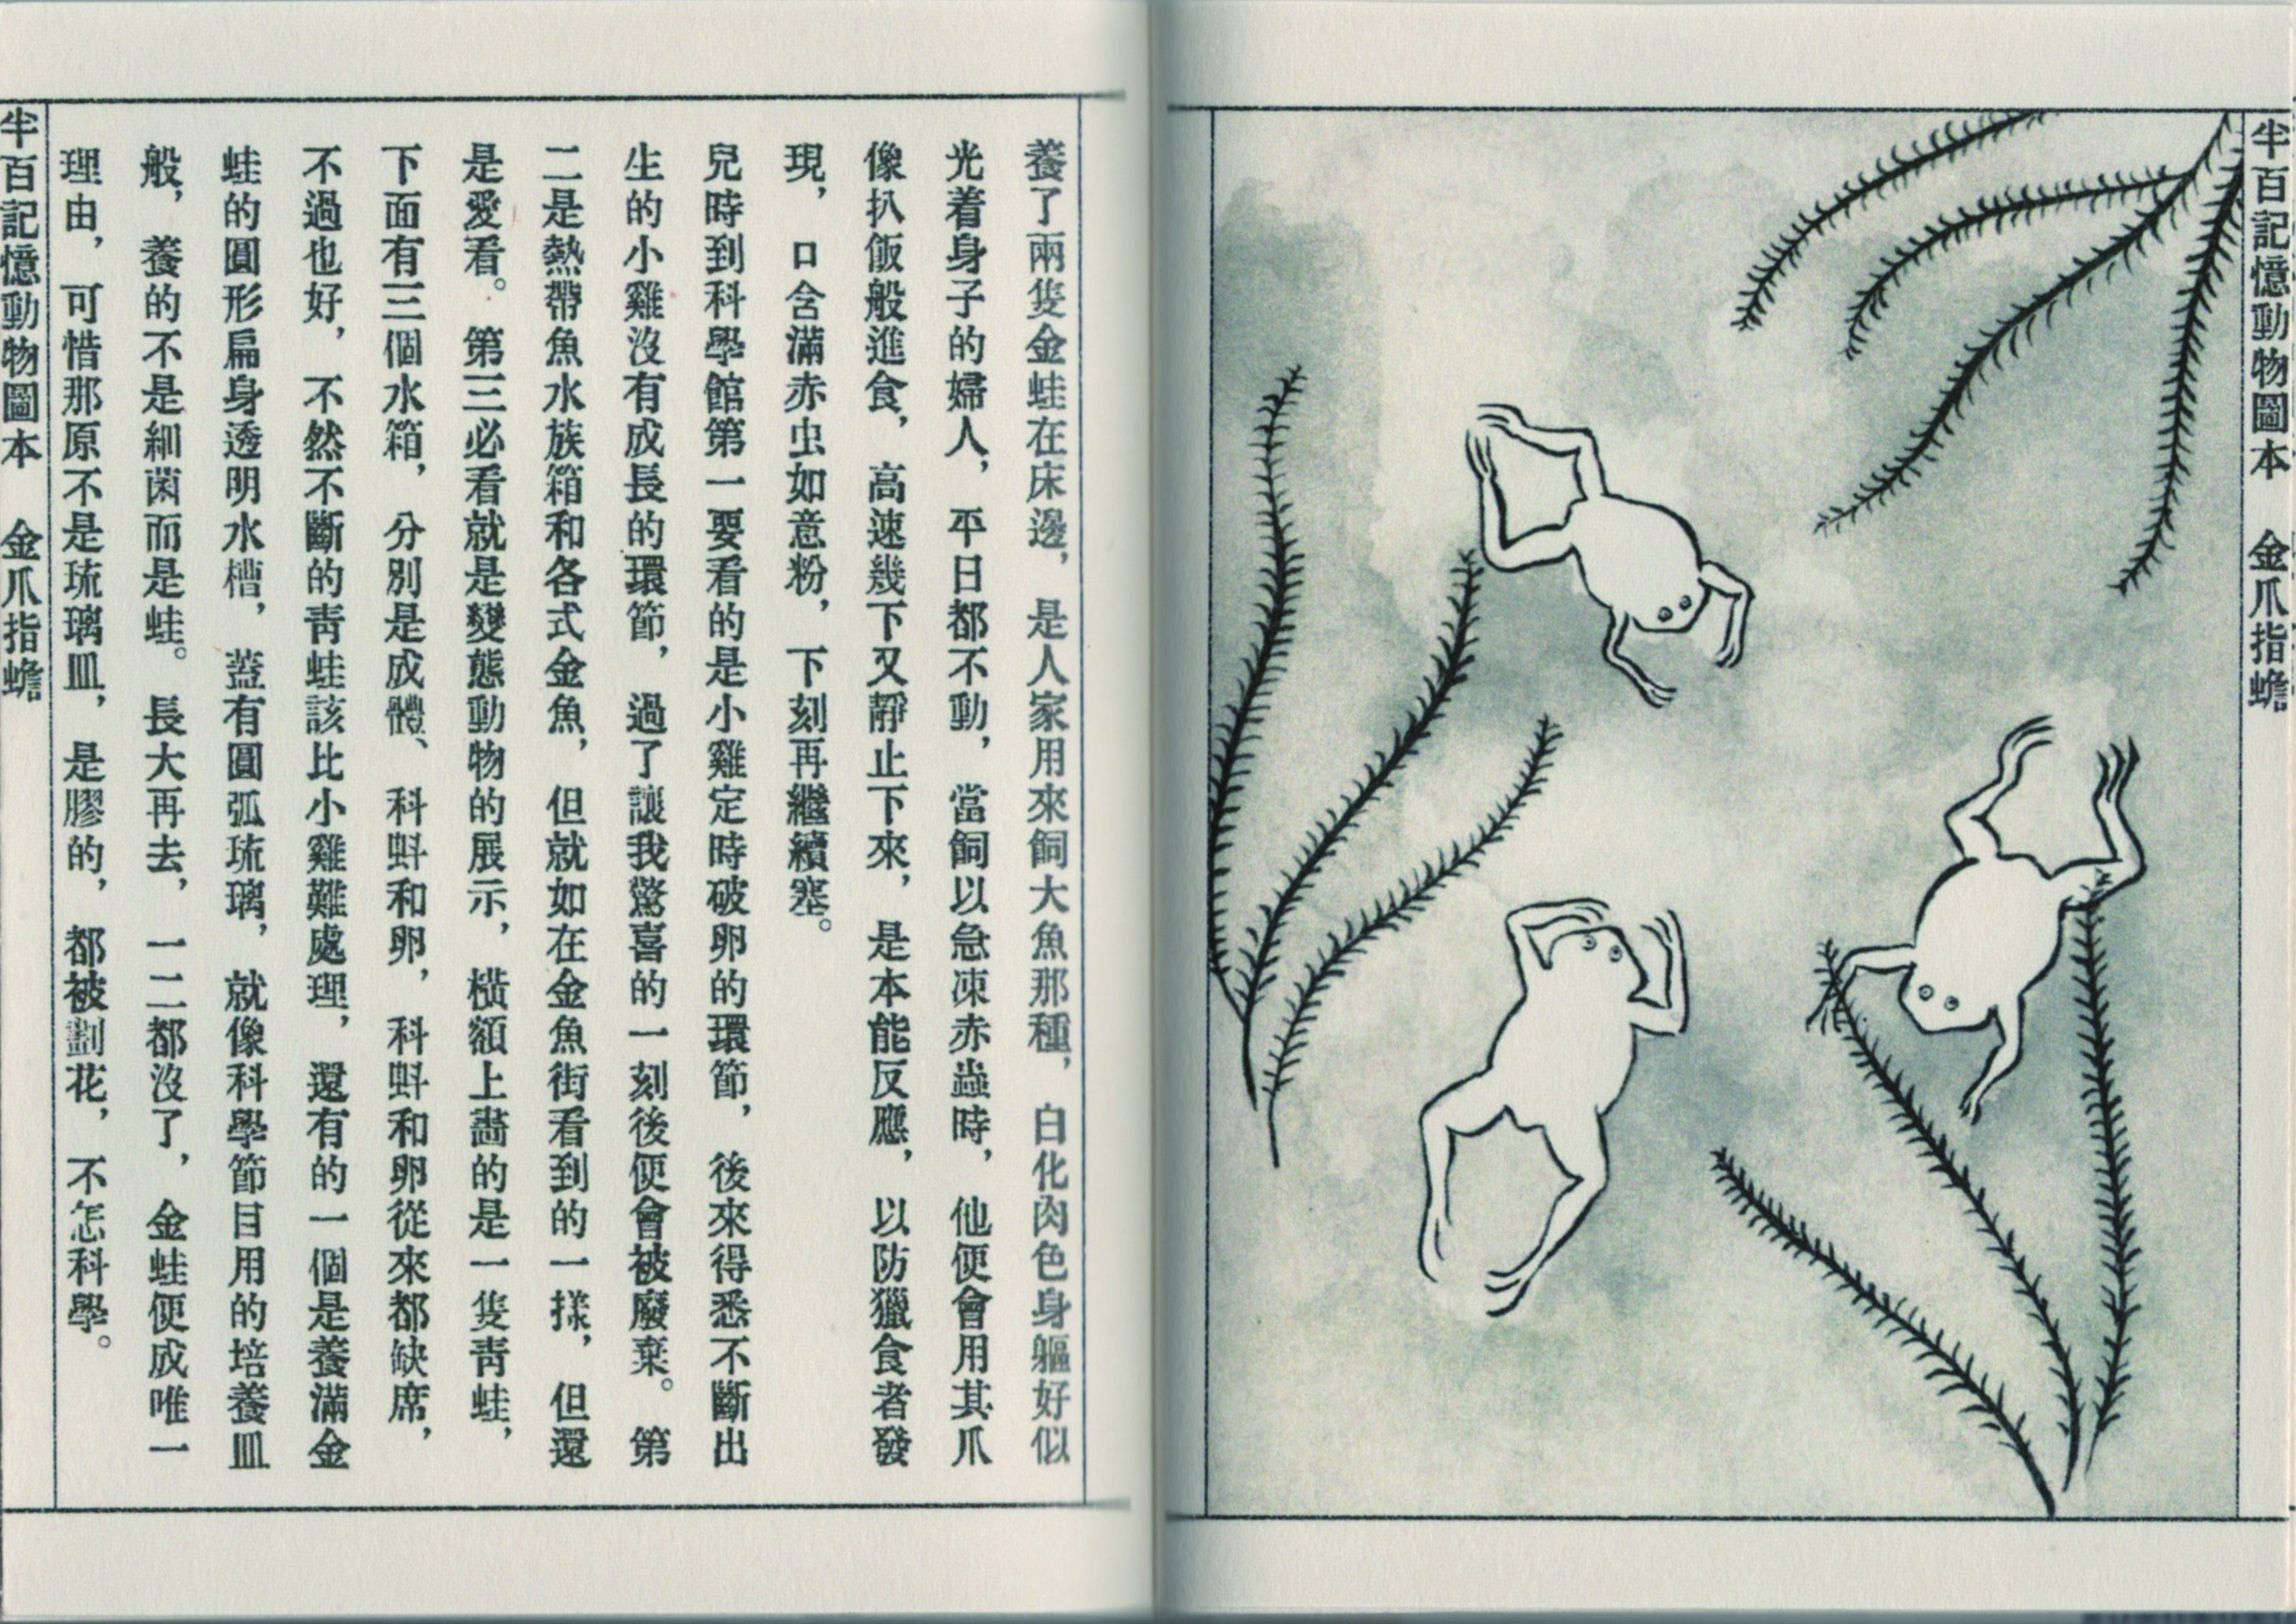 半百記憶動物圖本　金爪指蟾
養了兩隻金蛙在床邊，是人家用來飼大魚那種，白化肉色身軀好似
光着身子的婦人，平日都不動，當飼以急凍赤蟲時，他便會用其爪
像扒飯般進食，高速幾下又靜止下來，是本能反應，以防獵食者發
現，口含滿赤虫如意粉，下刻再繼續塞。
兒時到科學館第一要看的是小雞定時破卵的環節，後來得悉不斷出
生的小雞沒有成長的環節，過了讓我驚喜的一刻後便會被廢棄。第
二是熱帶魚水族箱和各式金魚，但就如在金魚街看到的一樣，但還
是愛看。第三必看就是變態動物的展示，橫額上畵的是一隻青蛙，
下面有三個水箱，分別是成體、科蚪和卵，科蚪和卵從來都缺席，
不過也好，不然不斷的青蛙該比小雞難處理，還有的一個是養滿金
蛙的圓形扁身透明水槽，蓋有圓弧琉璃，就像科學節目用的培養皿
般，養的不是細菌而是蛙。長大再去，一二都沒了，金蛙便成唯一
理由，可惜那原不是琉璃皿，是膠的，都被劃花，不怎科學。
半百記憶動物圖本　金爪指蟾